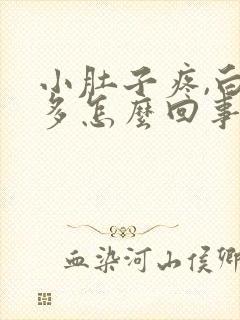 小肚子疼,白
多怎麼回事
血染河山侯卿